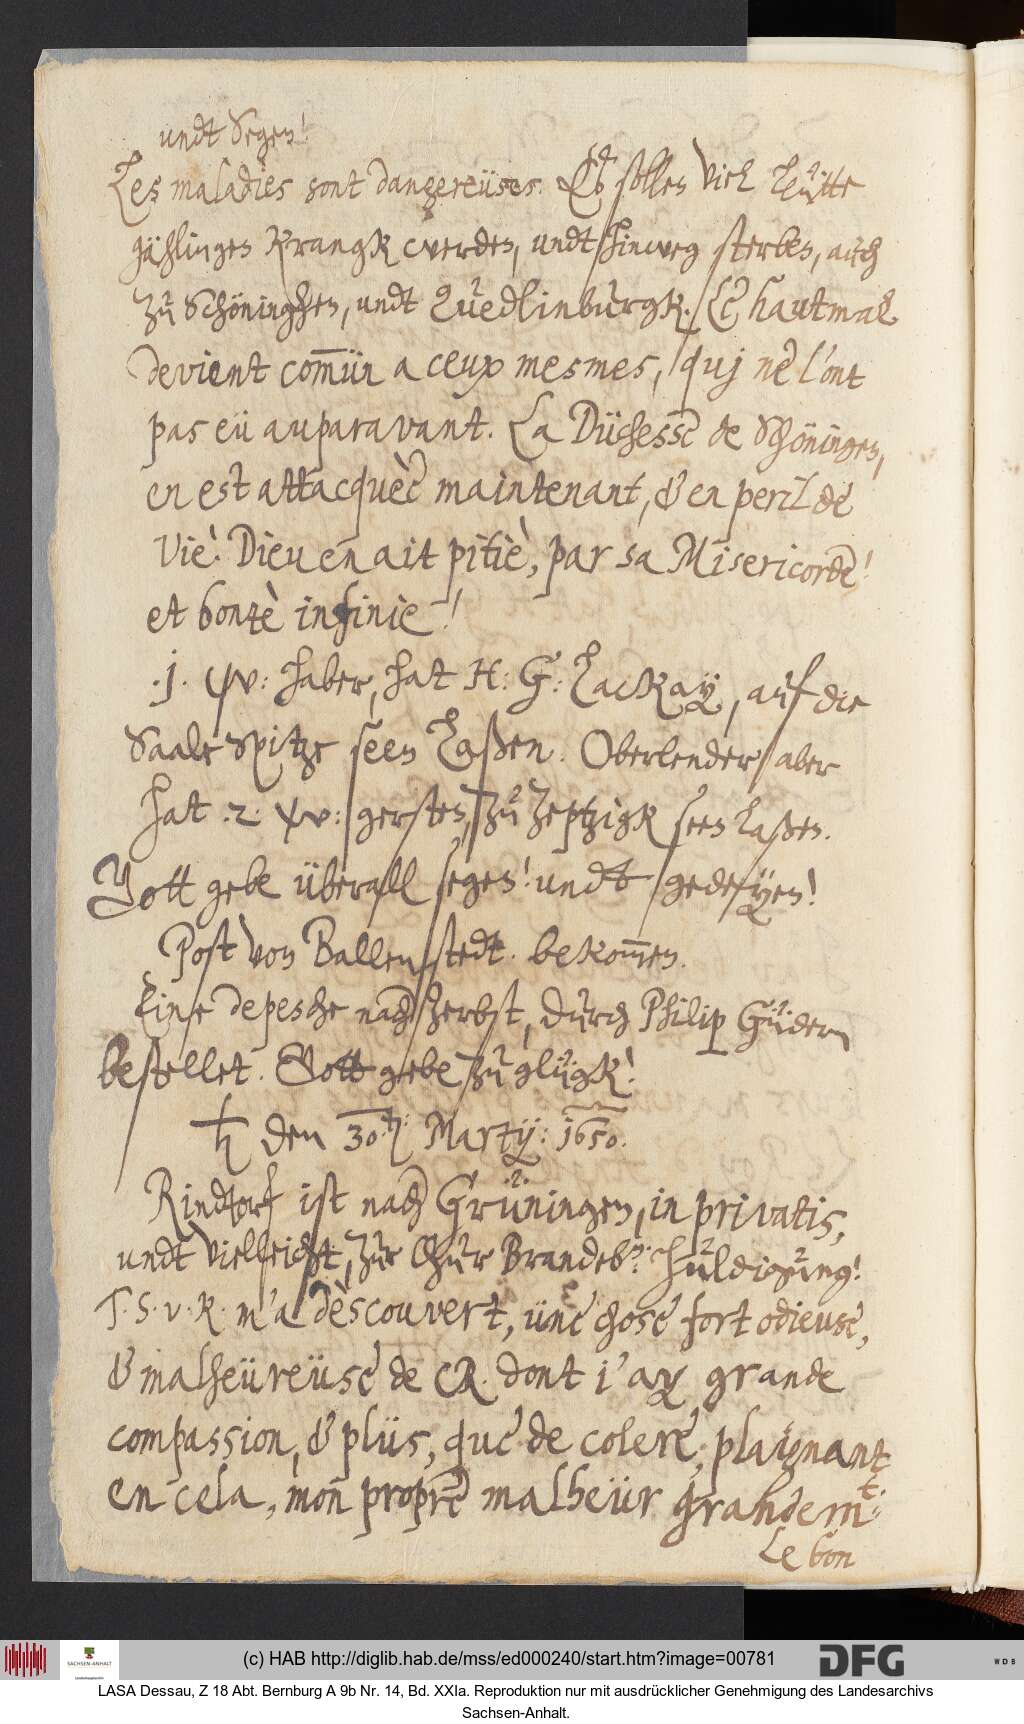 undt Segen!
Les maladies sont dangereüses. Es sollen viel leütte
gählingen krangk werden, undt hinweg sterben, auch
zu Schöninghen, undt Quedlinburgk. Le hautmal
devient com̄ün a ceux mesmes, quj ne l'ont
pas eü auparavant. La Düchesse de Schöningen,
en est attacquèe maintenant, & en peril de
vie. Dieu en ait pitiè, par sa Misericorde!
et bontè infinie!
.j. haber, hat H: G: Lackaÿ, auf die
Saale Spitze seen laßen. Oberlender aber
hat .2. gersten, zu Zeptzigk seen laßen.
Gott gebe überall segen! undt gedeÿen!
Post von Ballenstedt. bekom̄en.
Eine depesche nach Zerbst, durch Philip Güdern
bestellet. Gott gebe zu glügk!
♄ den 30. Martÿ: 1650.
Rindtorf ist nach Grüningen, in privatis,
undt vielleicht, zur Chur Brandeb: huldigung!
T. S. v. R. m'a dèscouvert, üne chose fort odieuse,
& malheüreüse de CR. dont i'ay grande
compassion, & plüs, que de colere, plaignant
en cela, mon propre malheür grandem̄t:
Le bon
(c) HAB http://diglib.hab.de/mss/ed000240/start.htm?image=00781
SACHSEN-ANHALT
DFG
WDB
LASA Dessau, Z 18 Abt. Bernburg A 9b Nr. 14, Bd. XXIa. Reproduktion nur mit ausdrücklicher Genehmigung des Landesarchivs
Sachsen-Anhalt.